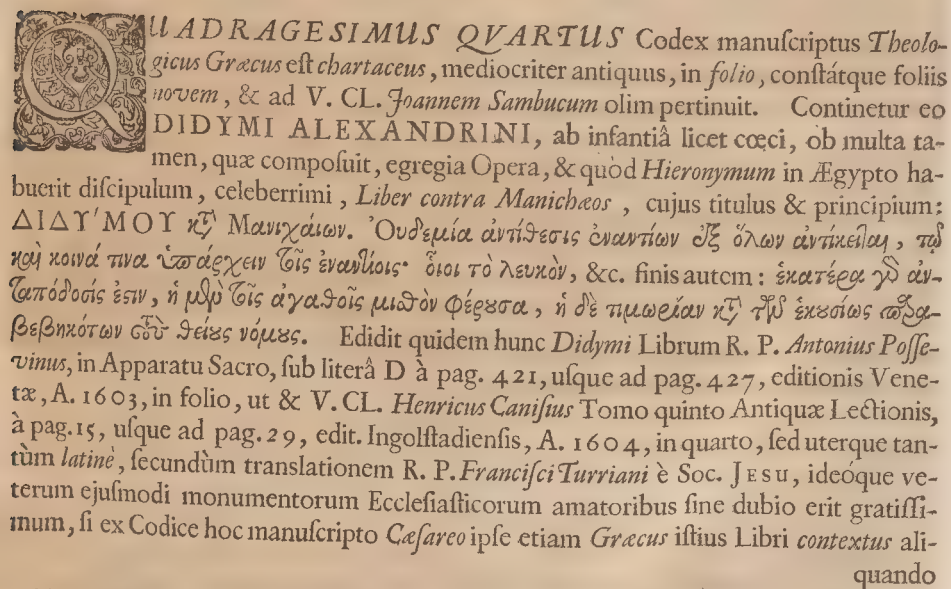 QUADRAGESIMUS QVARTUS Codex manuſcriptus Theolo-
gicus Græcus eſt chartaceus, mediocriter antiquus, in folio, conſtátque foliis
novem, & ad V. CL. Joannem Sambucum olim pertinuit. Continetur eo
DIDYMI ALEXANDRINI, ab infantiâ licet cœci, ob multa ta-
men, quæ compoſuit, egregia Opera, & quòd Hieronymum in Ægypto ha-
buerit diſcipulum, celeberrimi, Liber contra Manichæos, cujus titulus & principium:
ΔΙΔΥ'ΜΟΥ κτ̃ Μανιχαίων. Ὀυδεμία ἀντίθεσις ἐναντίων ἐξ ὅλων ἀντίκειται, τῷ
καὶ κοινά τινα ὑπάρχειν τοῖς ἐναντίοις· ὅιοι τὸ λευκὸν, &c. finis autem: ἑκατέρα γὰρ ἀν-
ταπόδοσίς ἐστιν, ἡ μὲν τοῖς ἀγαθοῖς μισθὸν φέρουσα, ἡ δὲ τιμωρίαν κτ̃ τῶν ἑκουσίως παρα-
βεβηκότων τοὺς θείους νόμους. Edidit quidem hunc Didymi Librum R. P. Antonius Poſſe-
vinus, in Apparatu Sacro, ſub literâ D à pag. 421, uſque ad pag. 427, editionis Vene-
tæ, A. 1603, in folio, ut & V. CL. Henricus Caniſius Tomo quinto Antiquæ Lectionis,
à pag. 15, uſque ad pag. 29, edit. Ingolſtadienſis, A. 1604, in quarto, ſed uterque tan-
tùm latinè, ſecundùm translationem R. P. Franciſci Turriani è Soc. JESU, ideóque ve-
terum ejuſmodi monumentorum Eccleſiaſticorum amatoribus ſine dubio erit gratiſſi-
mum, ſi ex Codice hoc manuſcripto Cæſareo ipſe etiam Græcus iſtius Libri contextus ali-
quando